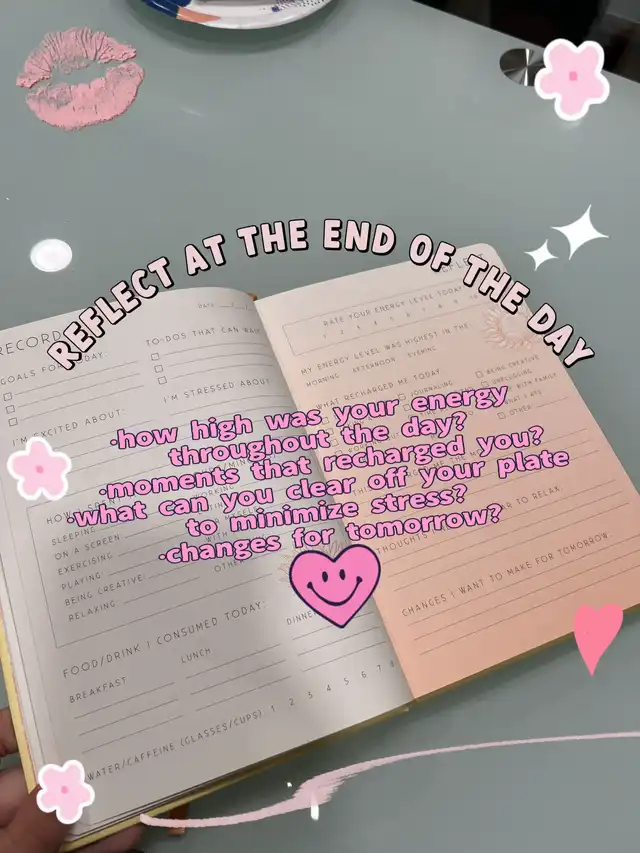 REFLECT AT THE END OF THE DAY
·how high was your energy
throughout the day?
·moments that recharged you?
·what can you clear off your plate
to minimize stress?
·changes for tomorrow?
RECORD
DATE
GOALS FOR
TO-DOS THAT CAN WAIT
I'M EXCITED ABOUT:
I'M STRESSED ABOUT:
SLEEPING
ON A SCREEN
EXERCISING
PLAYING
BEING CREATIVE:
RELAXING
FOOD/DRINK I CONSUMED TODAY:
BREAKFAST
LUNCH
WATER/CAFFEINE (GLASSES/CUPS) 1 2 3 4 5 6 7 8
RATE YOUR ENERGY LEVEL TODAY
MY ENERGY LEVEL WAS HIGHEST IN THE:
MORNING AFTERNOON EVENING
WHAT RECHARGED ME TODAY
JOURNALING
BEING CREATIVE
UNPLUGGING
WITH FAMILY
OTHER
TO RELAX
THOUGHTS
CHANGES I WANT TO MAKE FOR TOMORROW